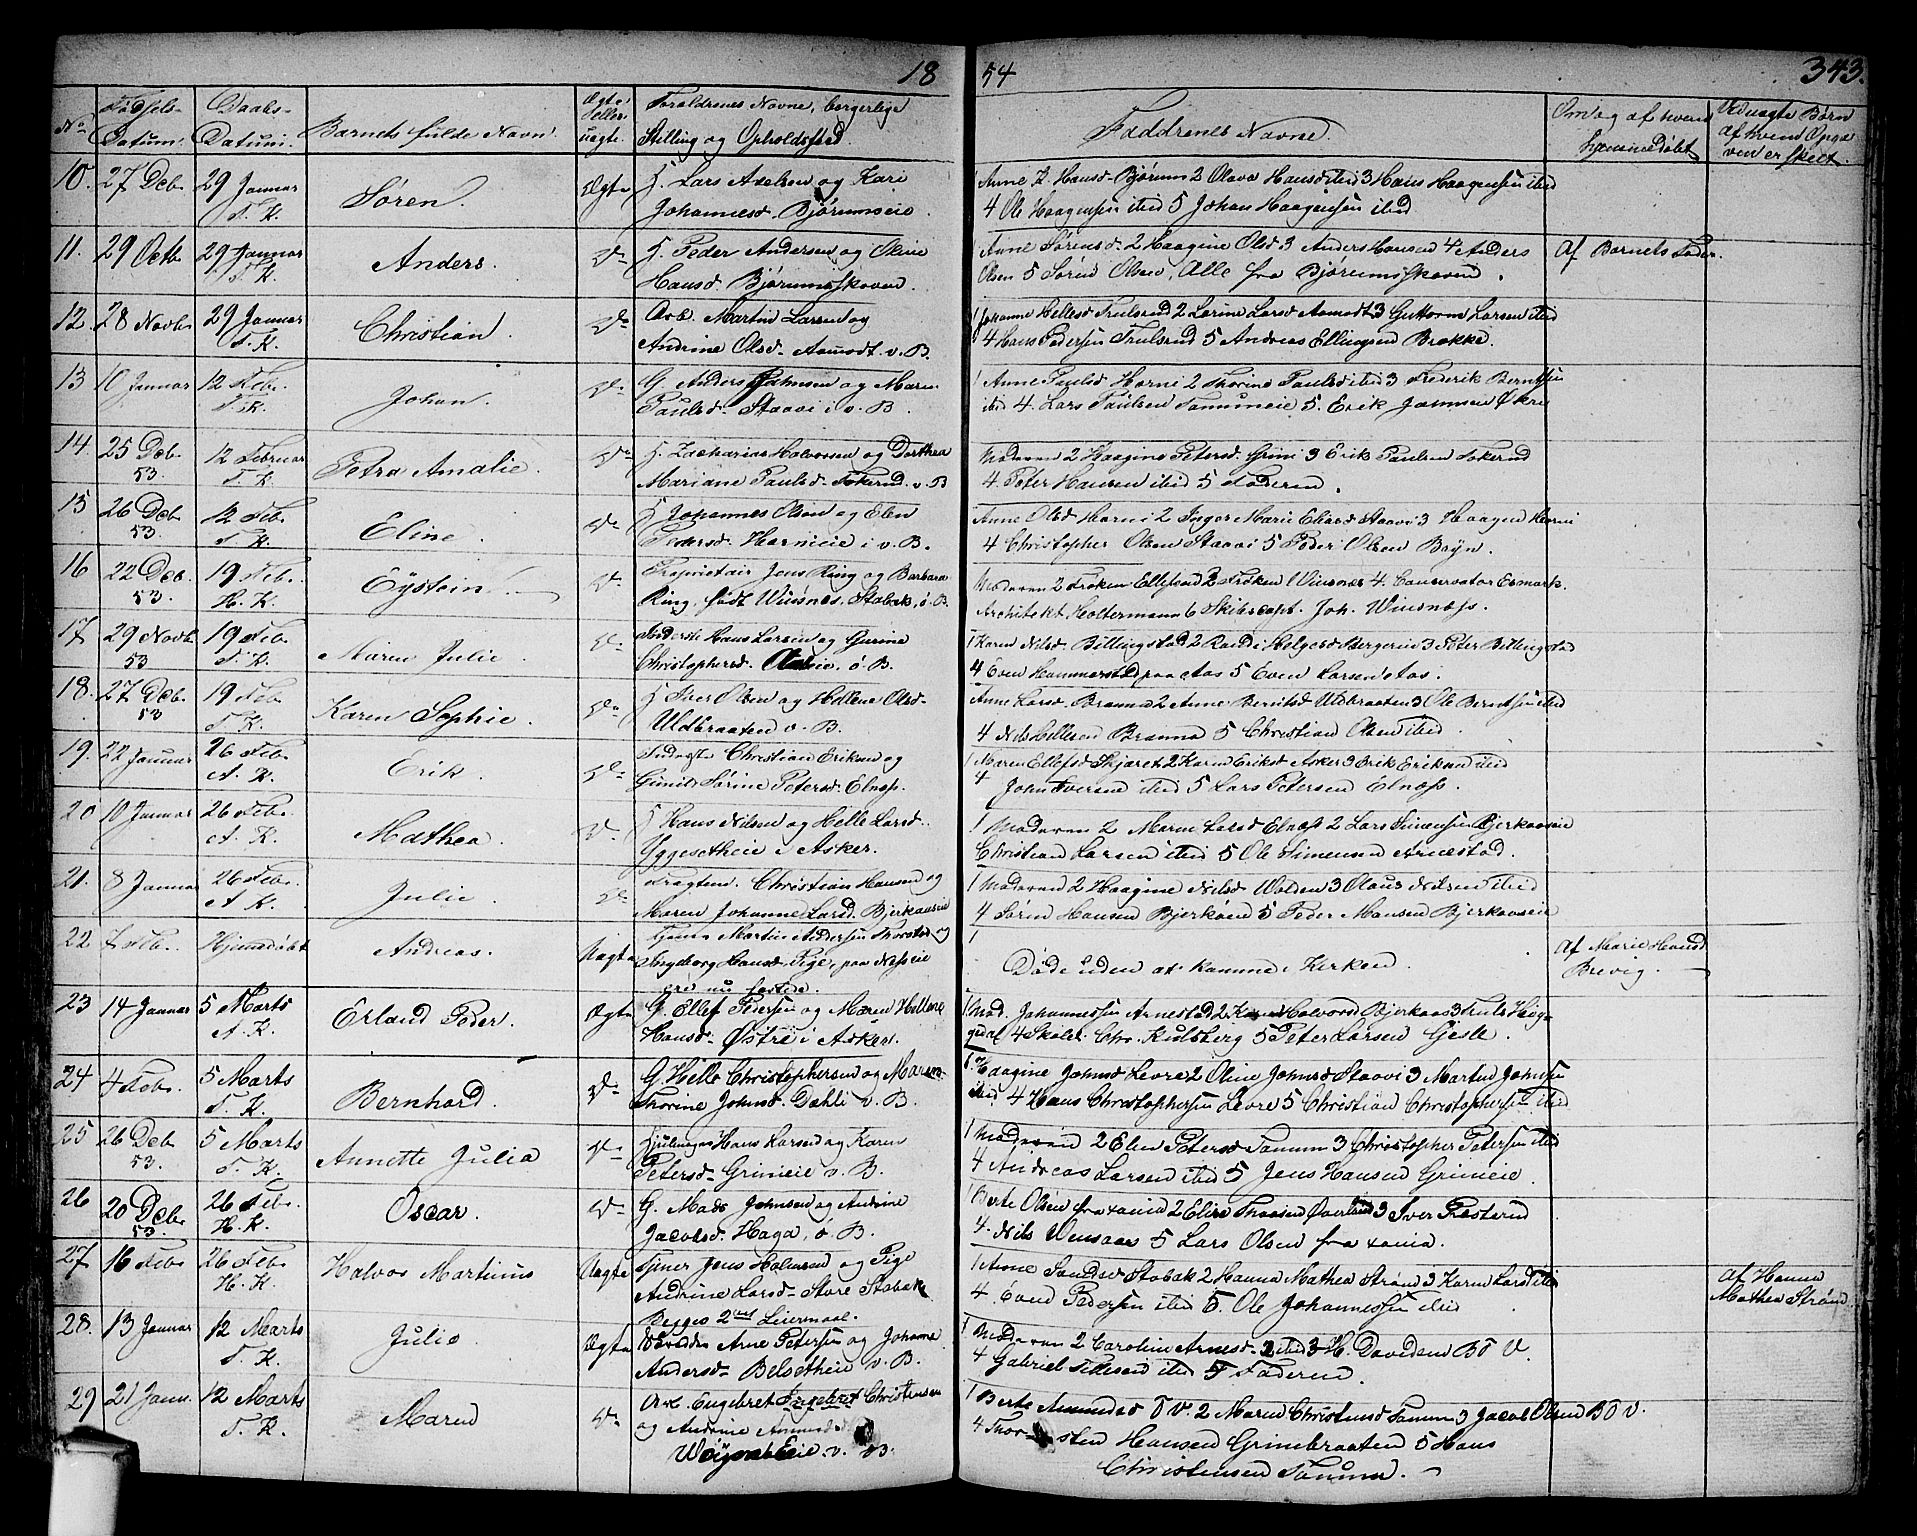 18
54
343.
No
Fødsels-
Datum.
Daabs-
Datum.
Barnets fulde Navn.
Ægte
eller
uægte.
Forældrenes Navne, borgerlige
Stilling og Opholdssted.
Faddrenes Navne.
Om og af hvem
hjemmedøbt
Ved uægte Børn
af hvem Opga
ven er skeet.
10. 27 Deb. 29 Januar Søren. Ægte G. Lars Axelsen og Kari
T. K. Johannesd. Bjørumseie.
1 Anne K. Hansd Bjørum 2 Olava Hansd itid 3 Hans Haagensen itid
4 Ole Haagensen itid 5 Johan Haagensen itid
11. 29 Octb. 29 Januar Anders. Do G. Peder Andersen og
T. K. Hansd. Bjørumsskoven.
1 Anne Sørensd. 2 Haagine Olsd 3 Anders Hansen 4 Anders
Olsen 5 Søren Olsen, Alle fra Bjørumsskoven.
Af Barnets Fader.
12. 28 Novb. 29 Januar Christian. Do Arb. Martin Larsen og
T. K. Andrine Olsd. Aamodt v. B.
1 Johanne Hellesd Trulsrud 2 Larine Larsd Aamodt 3 Guttorm Larsen itid
4 Hans Pedersen Trulsrud 5 Andreas Ellingsen Brække.
13 10 Januar 12 Feb. Johan. Do G. Anders Johnsen og Maren
T. K. Paulsd. Staavi i v. B.
1 Anne Paulsd Horni 2 Thorine Paulsd itid 3 Frederik Berntsen
itid 4. Lars Paulsen Tanumeie 5. Erik Jonsen Økri
14. 25 Deb. 12 Februar Petra Amalie. Do G. Zacharias Halvorsen og Dorthea
53. T. K. Mariane Paulsd. Tokerud. v. B
Moderen 2 Haagine Petersd. Grini 3 Erik Paulsen Tokerud
4. Peter Hansen itid 5 Faderen.
15 26 Deb. 12 Feb. Eline. Do G. Johannes Olsen og Elen
53. T. K. Pedersd. Hornieie i v. B.
Anne Olsd Horni 2 Inger Marie Eliasd Staavi 3 Haagen Horni
4 Christopher Olsen Staavi 5 Peder Olsen Bøyn.
16 22 Deb. 19 Feb. Eystein. Do Proprietair Jens Ring og Barbara
53. H. K. Ring, født Winsnes, Stabek, ø. B.
Moderen 2 Frøken Ellefsen 3 Frøken Winsnes 4. Conservator Esmark.
Architekt Holtermann 6 Skibscapt. Joh. Winsnes.
17 29 Novb. 19 Feb. Maren Julie. Do Inderste Hans Larsen og Gurine
53 T. K. Christophersd. ø. B.
1 Karen Nilsd Billingstad 2 Randi Helgesd Bergerie 3 Peter Billingstad
4 Even Hammerstad paa Aas 5 Even Larsen Aas.
18. 27 Deb. 19 Feb. Karen Sophie. Do G. Iver Olsen og Hellene Olsd.
53 T. K. Uldbraaten v. B.
Anne Larsd. Brænna 2 Anne Berntsd Uldbraaten 3 Ole Berntsen itid
4 Nils Hellesen Brænna 5 Christian Olsen itid.
19. 22 Januar 26 Feb. Erik. Do Inderste Christian Eriksen og
A. K. Gunild Sørine Petersd. Elnæs.
1 Maren Ellefsd Skjæret 2 Karen Eriksd Asker 3 Erik Eriksen itid
4 John Iversen itid 5 Lars Petersen Elnæs.
20 10 Januar 26 Feb. Mathea. Do G. Hans Nilsen og Helle Larsd.
A. K. Yggesetheie i Asker.
1 Moderen 2 Maren Larsd Elnæs 2 Lars Simensen Bjerkaaseie
Christian Larsen itid 5 Ole Simensen Arnestad.
21. 8 Januar 26 Feb. Julie. Do Fragtem. Christian Hansen og
A K. Maren Johanne Larsd. Bjerkaaseie
1 Moderen 2 Haagine Nilsd Wolden 3 Olaus Nilsen itid
4 Søren Hansen Bjerkøen 5 Peder Monsen Bjerkaaseie
22 Feb. Hjemmedøbt Andreas. Uægte Tjener Martin Andersen Thorstad og
Ingeborg Hansd. Pige, paa Næseie
ere nu fæstede.
1 Døde uden at komme i Kirken.
Af Marie Hansd
Brevig.
23 14 Januar 5 Marts Erland Peder. Ægte G. Ellef Pedersen og Maren Hellene
A. K. Hansd. Østre i Asker.
1 Mod. Johannessen Arnestad 2 Karen Halvorsd Bjerkaas 3 Truls Høg-
4 Skolel. Chr. Kulsberg 5 Peter Larsen Gisle.
24 4 Feb. 5 Marts Bernhard. Do G. Helle Christophersen og Maren
T. K. Thorine Johnsd. Dæhli v. B.
1 Haagine Johnsd Levre 2 Oline Johnsd Staavi 3 Martin Johnsen
itid 4 Hans Christophersen Levre 5 Christian Christophersen itid
25 26 Deb. 5 Marts Annette Julia Do Hjulmager Hans Larsen og Karen
53. T. K. Petersd. Grinieie v. B.
1 Moderen 2 Elen Petersd Tanum 3 Christopher Petersen itid
4 Andreas Larsen itid 5 Jens Hansen Grinieie.
26 20 Deb. 26 Feb. Oscar. Do G. Mads Johnsen og Andrine
53. H. K. Jacobsd. Haga, ø. B.
1 Berte Olsen fra xania 2 Elise Thoresen Øverland 3 Iver Præsterud
4. Nils Wensaas 5 Lars Olsen fra xania.
27 16 Feb. 26 Feb. Halvor Martinus Uægte Tjener Jens Halvorsen og Pige
H. K. Andrine Larsd. Store Stabæk.
Begges 2det Leiermaal.
1 Anne Stabæk 2 Hanna Mathea Strand 3 Karen Larsd itid
4 Even Pedersen itid 5. Ole Johannessen itid
Af Hanna
Mathea Strand
28. 13 Januar 12 Marts Julie Ægte Arne Petersen og Johanne
T. K. Andersd. Belsetheie v. B.
1 Moderen 2 Caroline Arnesd. itid 3 H. Davidsen B T V.
4 Gabriel Tillesen itid 5 Faderen.
29 21 Janu. 12 Marts Maren Do Arb. Engebret Engebret Christensen
T. K. og Andrine Amundsd
Eie v. B.
1 Berte Amundsd T V. 2 Maren Christensd Tanum 3 Jacob Olsen B T V.
4 Thor- sten Hansen Grinibraaten 5 Hans
Christensen Tanum.